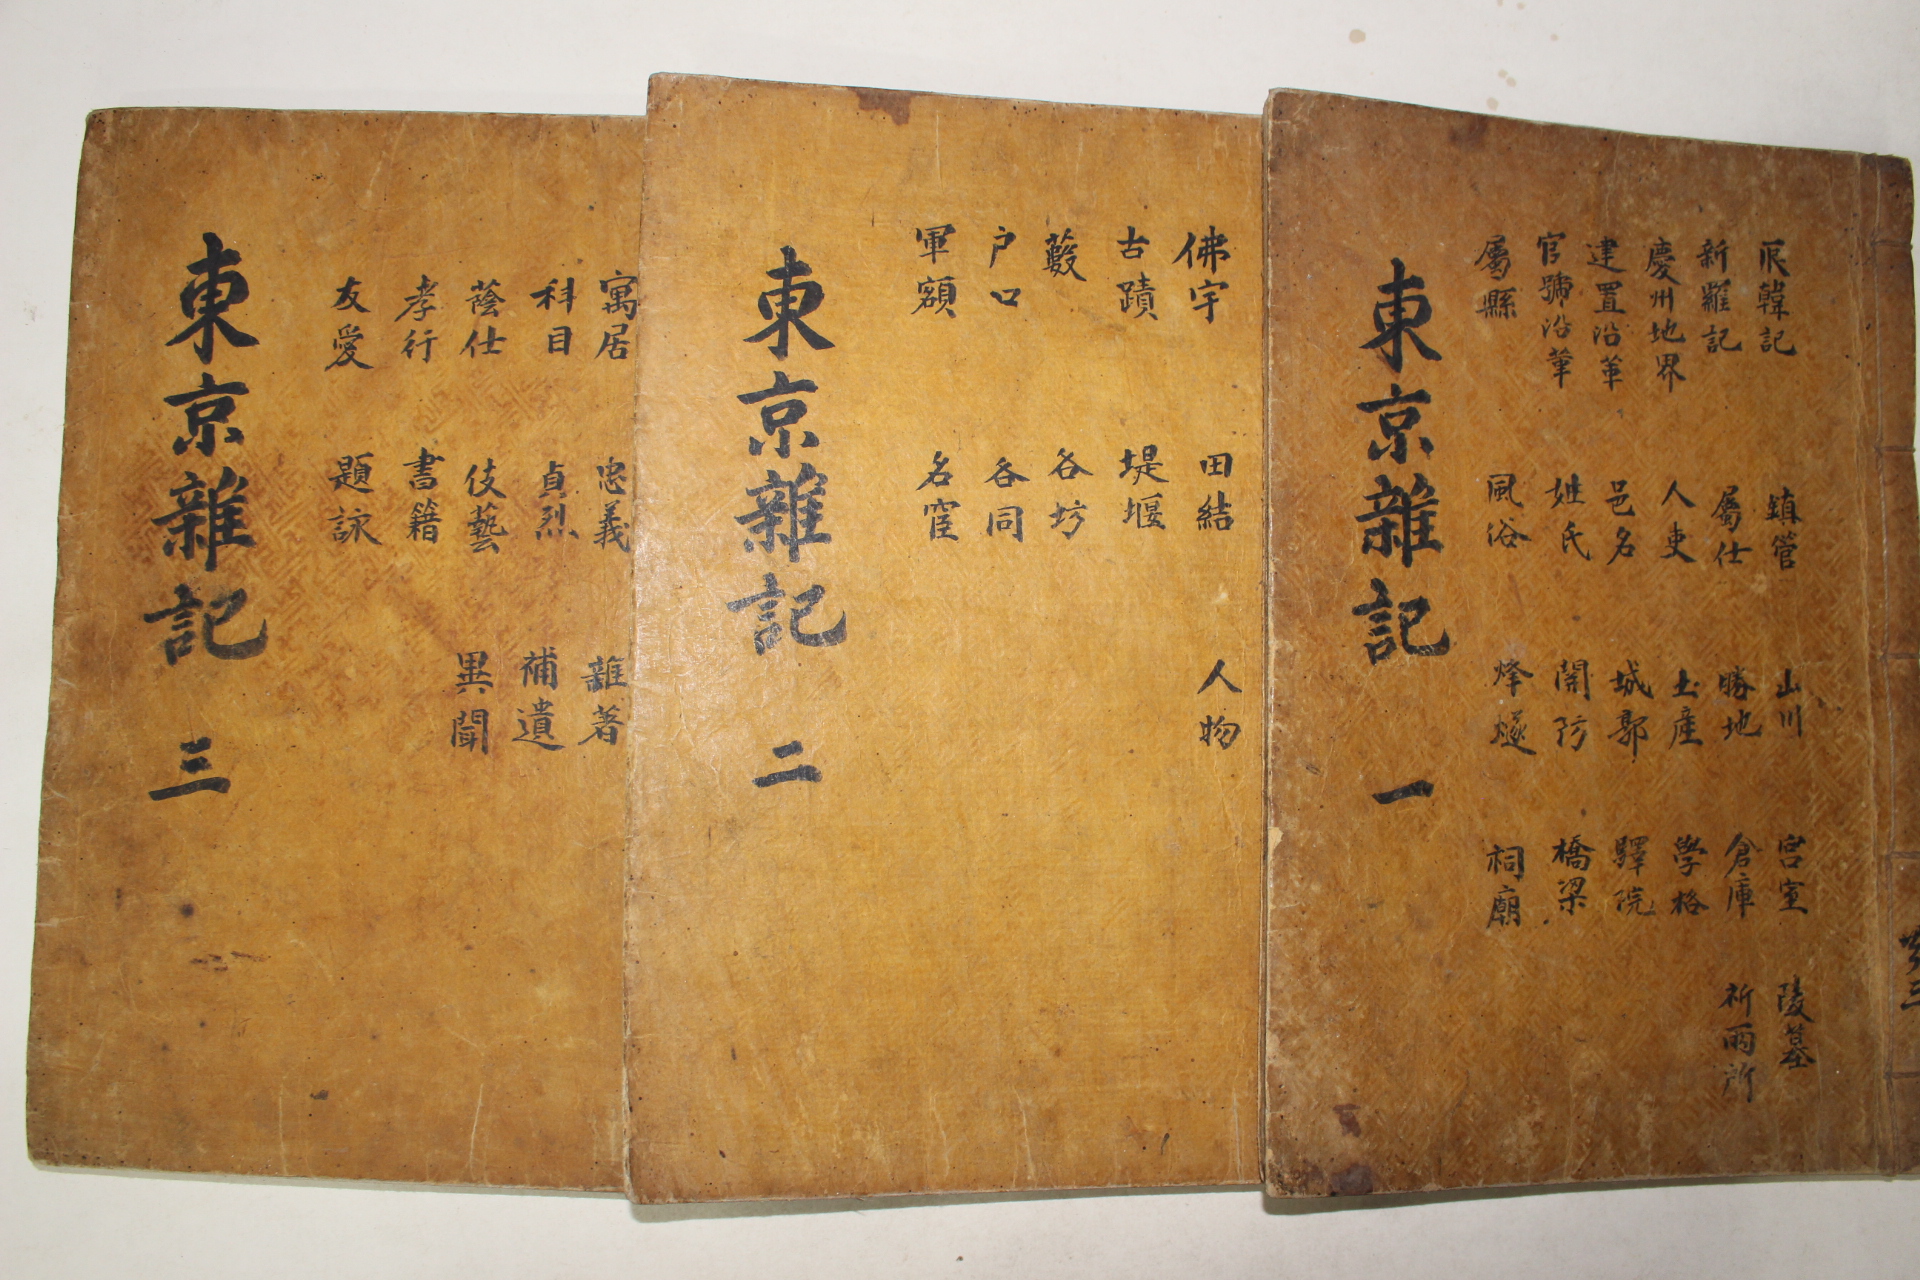 東京雜記 一
辰韓記
新羅記
慶州地界
建置沿革
官號沿革
屬縣
鎮管
屬仕
人吏
邑名
姓氏
風俗
山川
勝地
土産
城郭
關防
烽燧
宮室
倉庫
學格
驛院
橋梁
祠廟
陵墓
祈雨所
東京雜記 二
佛宇
古蹟
藪
户口
軍額
田結
堤堰
各坊
各同
名宦
人物
東京雜記 三
寓居
科目
蔭仕
孝行
友愛
忠義
貞烈
伎藝
書籍
題詠
雜著
補遺
異聞